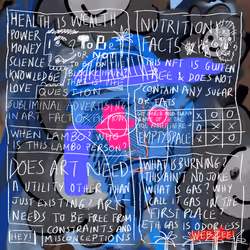 HEALTH IS WEALTH
POWER
MONEY
SCIENCE
KNOWLEDGE
LOVE
To Be
or Not
QUESTION
SUBLIMINAL ADVERTISING
IN ART
WHEN LAMBO? WHO
IS THIS LAMBO PERSON?
DOES ART NEED
UTILITY OTHER THAN
JUST EXISTING! ART
NEEDS TO BE FREE FROM
CONSTRAINTS AND
HEY! MISCONCEPTIONS
NUTRITION
FACTS
THIS NFT IS GLUTEN
FREE & DOES NOT
CONTAIN ANY SUGAR
OR FATS
EMPTY SPACE
WHAT IS BURNING?
THIS AIN'T NO JOKE
WHAT IS GAS? WHY
CALL IT GAS IN THE
FIRST PLACE
ETH GAS IS ODORLESS